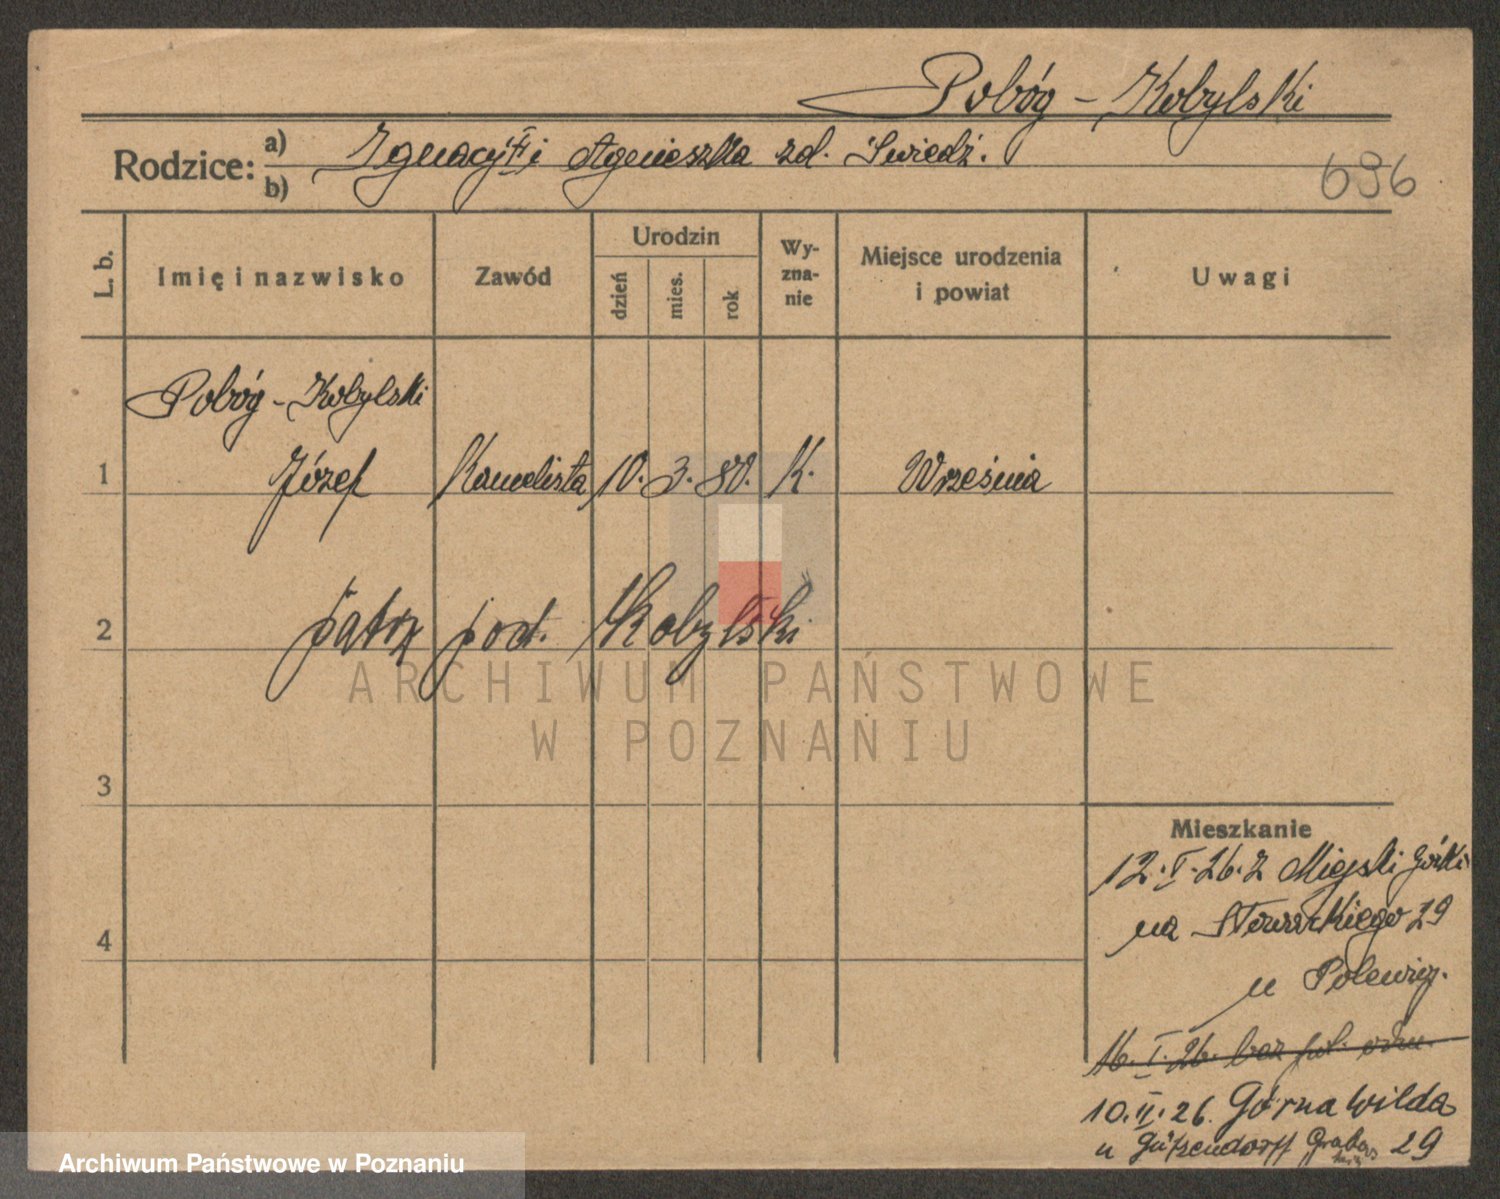 Pobóg - Kobylski
Rodzice: a) Ignacy i Agnieszka zd. Świedź.
b)
696
L. b. Imię i nazwisko Zawód Urodzin dzień mies. rok Wy-zna-nie Miejsce urodzenia i powiat Uwagi
Pobóg - Kobylski
1 Józef Kancelista 10. 3. 80. K. Września
2 patrz pod. Kobylski
ARCHIWUM PAŃSTWOWE
W POZNANIU
3
Mieszkanie
12. I. 26. z Miejski Górki
na Słowackiego 29
4
u
16. I. 26. bez
10. II. 26. Górna Wilda
u Gützendorff 29
Archiwum Państwowe w Poznaniu